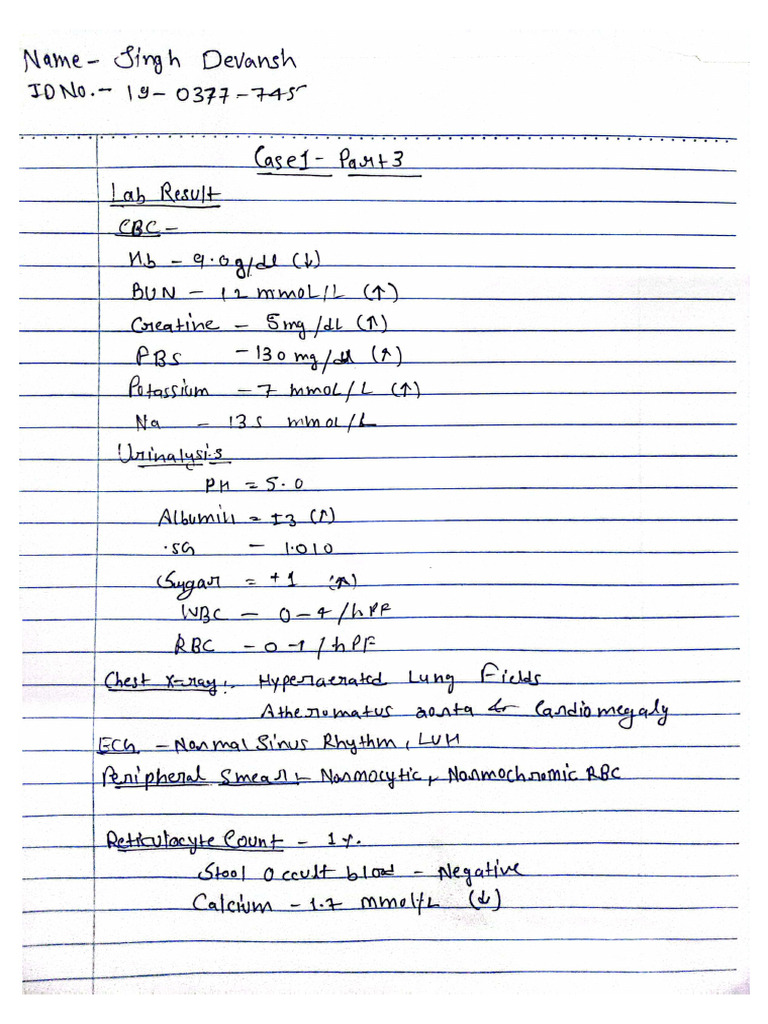 Name - Singh Devansh
ID No. - 19-0377-745
Case 1 - Part 3
Lab Result
CBC -
Hb - 9.0 g/dl (↓)
BUN - 12 mmoL/L (↑)
Creatine - 5mg/dL (↑)
PBS - 130 mg/dl (↑)
Potassium - 7 mmoL/L (↑)
Na - 135 mmol/L
Urinalysis
PH = 5.0
Albumin = +3 (↑)
.SG - 1.010
Sugar = +1 (↑)
WBC - 0-4/hPF
RBC - 0-1/hPF
Chest X-ray:- Hyperaerated Lung Fields
Atheromatus aorta & Cardiomegaly
ECG - Normal Sinus Rhythm, LVH
Peripheral Smear - Normocytic, Normochromic RBC
Reticulocyte Count - 1%.
Stool Occult blood - Negative
Calcium - 1.7 mmol/L (↓)